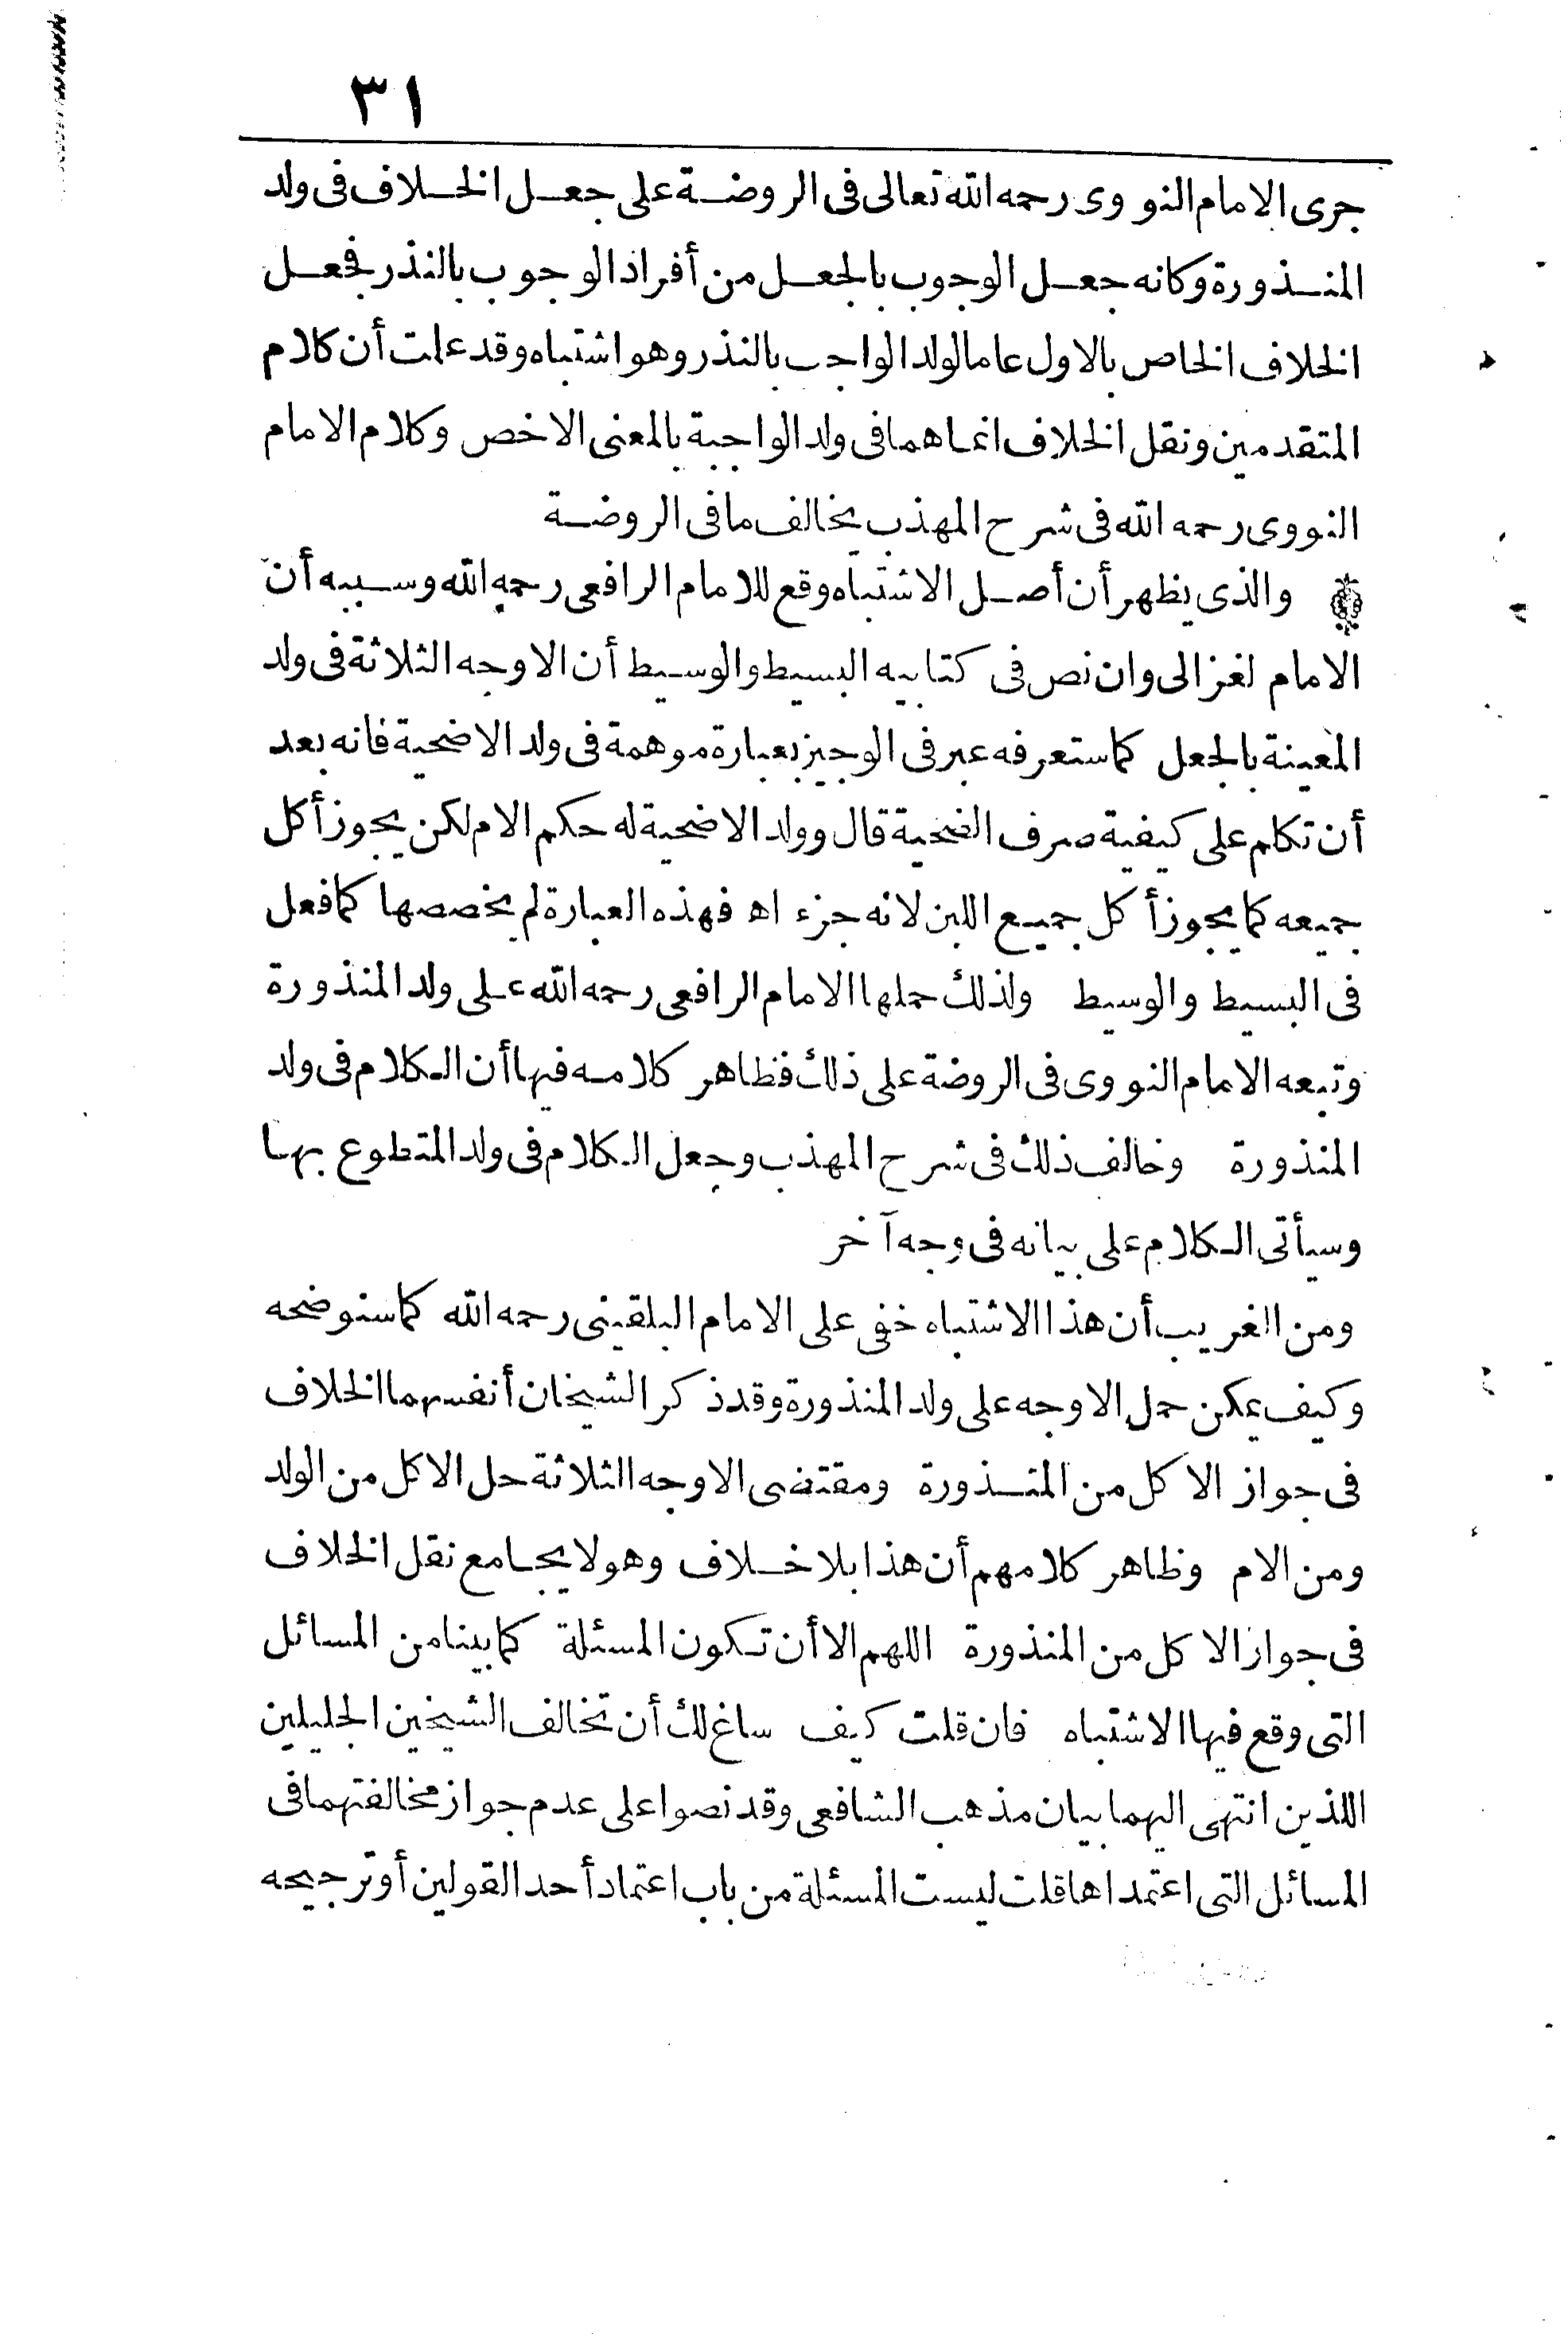 ٣١
جرى الامام النووى رحمه الله تعالى فى الروضة على جعل الخلاف فى ولد
المنذورة وكانه جعل الوجوب بالجعل من أفراد الوجوب بالنذر فجعل
الخلاف الخاص بالاول عاما لولد الواجب بالنذر وهو اشتباه وقد علمت أن كلام
المتقدمين ونقل الخلاف انما هما فى ولد الواجبة بالمعنى الاخص وكلام الامام
النووى رحمه الله فى شرح المهذب يخالف ما فى الروضة
والذى يظهر أن أصل الاشتباه وقع للامام الرافعى رحمه الله وسببه أن
الامام لغزالى وان نص فى كتابيه البسيط والوسيط أن الاوجه الثلاثة فى ولد
المعينة بالجعل كما ستعرفه عبر فى الوجيز بعبارة موهمة فى ولد الاضحية فانه بعد
أن تكلم على كيفية صرف الضحية قال وولد الاضحية له حكم الام لكن يجوز أكل
جميعه كما يجوز أكل جميع اللبن لانه جزء اه فهذه العبارة لم يخصصها كما فعل
فى البسيط والوسيط ولذلك حملها الامام الرافعى رحمه الله على ولد المنذورة
وتبعه الامام النووى فى الروضة على ذلك فظاهر كلامه فيها أن الكلام فى ولد
المنذورة وخالف ذلك فى شرح المهذب وجعل الكلام فى ولد المتطوع بها
وسيأتى الكلام على بيانه فى وجه آخر
ومن الغريب أن هذا الاشتباه خفى على الامام البلقينى رحمه الله كما سنوضحه
وكيف يمكن حمل الاوجه على ولد المنذورة وقد ذكر الشيخان أنفسهما الخلاف
فى جواز الاكل من المنذورة ومقتضى الاوجه الثلاثة حل الاكل من الولد
ومن الام وظاهر كلامهم أن هذا بلا خلاف وهو لا يجامع نقل الخلاف
فى جواز الاكل من المنذورة اللهم الا أن تكون المسئلة كما بينا من المسائل
التى وقع فيها الاشتباه فان قلت كيف ساغ لك أن تخالف الشيخين الجليلين
اللذين انتهى اليهما بيان مذهب الشافعى وقد نصوا على عدم جواز مخالفتهما فى
المسائل التى اعتمداها قلت ليست المسئلة من باب اعتماد أحد القولين أو ترجيحه